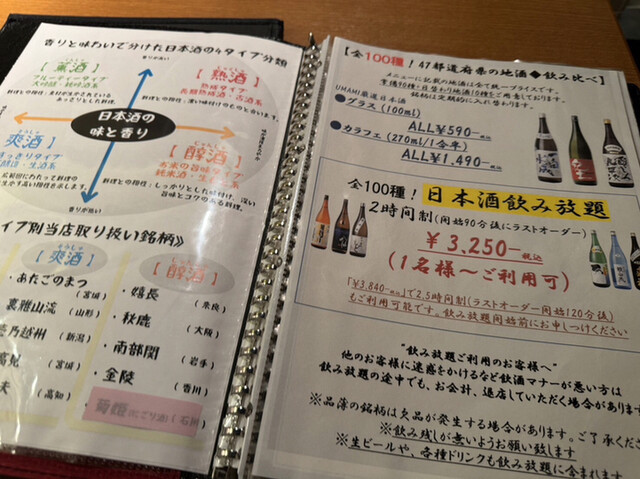 香りと味わいで分けた日本酒の4タイプ分類
香りが高い
【薫酒】
フルーティータイプ
大吟醸・純吟醸系
あっさりとした料理
【熟酒】
熟成タイプ
長期熟成酒・古酒系
料理との相性：濃い味付けのものと合います。
日本酒の
味と香り
【爽酒】
すっきりタイプ
生かす高い相性を示します。
【醇酒】
古来の旨味タイプ
純米酒・生酛系
料理との相性：しっかりとした味付け、深い
旨味とコクのある料理。
香りが低い
イプ別当店取り扱い銘柄》
【爽酒】
・あたごのまつ
（宮城）
裏雅山流（山形）
越州（新潟）
（宮城）
夫（高知）
【醇酒】
・嬉長（奈良）
・秋鹿（大阪）
・南部関（岩手）
・金陵（香川）
菊姫（にごり酒）（石川
【全100種！47都道府県の地酒◆飲み比べ】
メニューに記載の地酒は全て統一プライスです。
常備90種・日替わり地酒10種をご用意しております。
UMAMI厳選日本酒
銘柄は定期的に入れ替わります。
●グラス（100ml）
ALL¥590-税込
●カラフェ（270ml/1合半）
ALL¥1,490-税込
全100種！日本酒飲み放題
2時間制（開始90分後にラストオーダー）
¥3,250-税込
（1名様～ご利用可）
「¥3,840-税込」で2.5時間制（ラストオーダー開始120分後）
もご利用可能です。飲み放題開始前にお申しつけください
"飲み放題ご利用のお客様へ"
他のお客様に迷惑をかけるなど飲酒マナーが悪い方は
飲み放題の途中でも、お会計、退店していただく場合があります
※品薄の銘柄は欠品が発生する場合があります。ご了承くださ
※飲み残しが無いようお願い致します
※生ビールや、各種ドリンクも飲み放題に含まれます